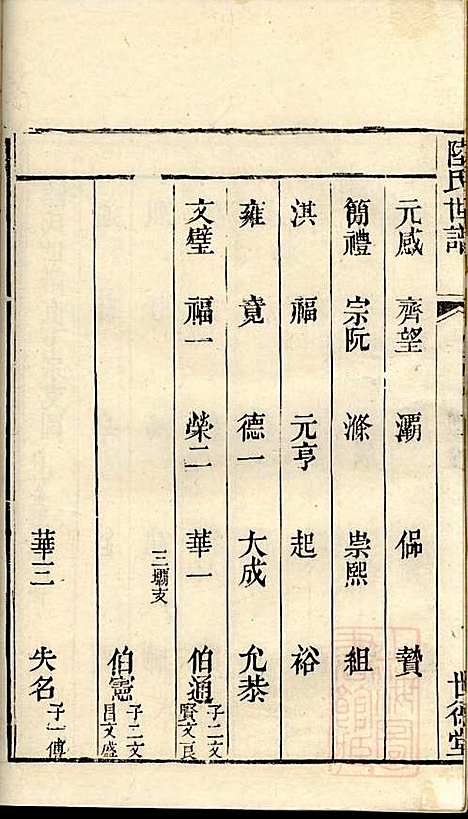 陸氏世譜
世德堂
元感 齊望 灞 偋 贄
簡禮 宗阮 滌 崇熙 組
淇 福 元亨 起 裕
雍 竟 德一 大成 允恭
文璧 福一 榮二 華一 伯通 子二文賢文良
三壩支
伯憲 子二文昌文盛
華三 失名 子一傅